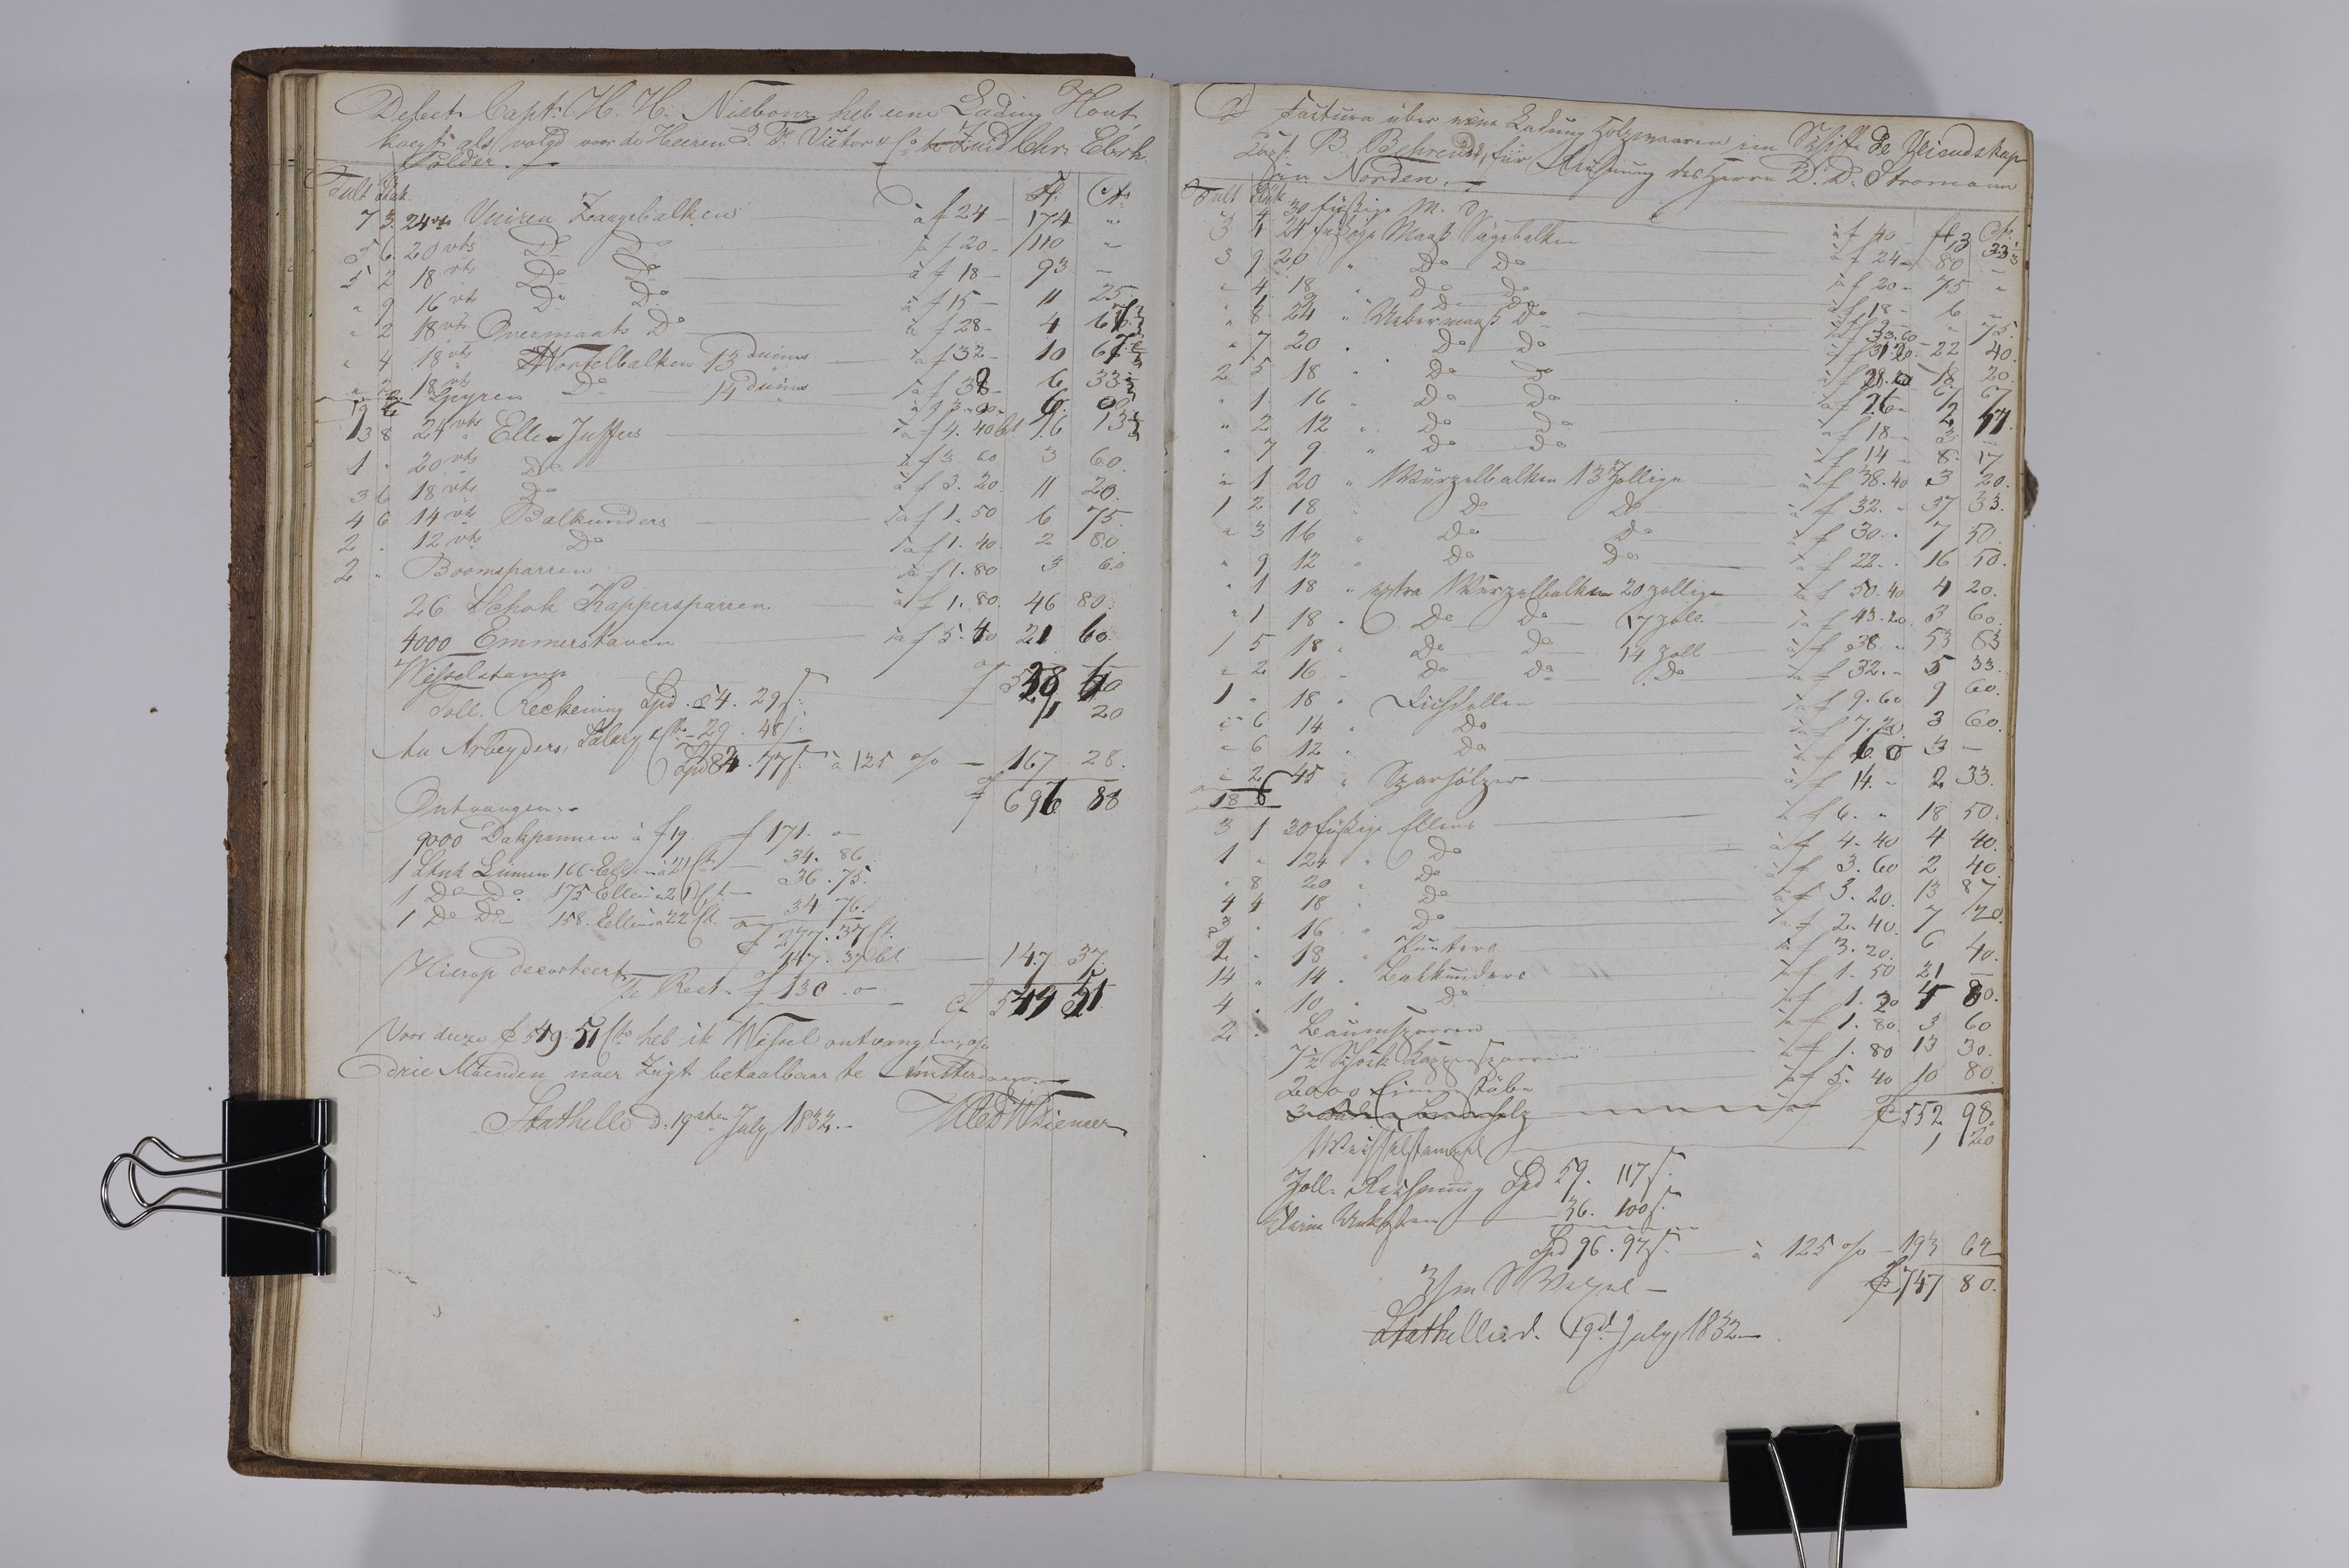 Debet Capt: H. H. Niebour heb een Lading Hout
koegt als volgd voor de Heeren T. F. Victor & Co Chr: Eberh.
Polder.
Tult Stuk Fl. Ct:
7 3 24 vts Vuiren Zaagebalken à f 24 - 174 "
5 6 20 vts Do Do à f 20 - 110 "
5 2 18 vts Do Do à f 18 - 93 -
" 9 16 vts Do Do à f 15 - 11 25
" 2 18 vts Overmaats Do à f 28 - 4 67
" 4 18 vts Wortelbalken 13 duims à f 32 - 10 67
" 2 18 vts Do 14 duims à f 38 - 6 33
Spyren
13 8 24 vts Ellen Juffers à f 4. 40
1 " 20 vts Do à f 3. 60 3 60.
3 6 18 vts Do à f 3. 20. 11 20.
4 6 14 vts Balkunders à f 1. 50 6 75.
2 . 12 vts Do à f 1. 40. 2 80.
2 " Boomsparren à f 1. 80 3 60
26 Schok Kappersparren à f 1. 80. 46 80.
4000 Emmerstaven à f 5. 40 21 60.
Wisselstamp 1 20
Toll. Reckening Spd. 54. 29 s.
An Arbeyders, Salary &c 29. 48 s.
Spd 84. 77 s. à 125 % — 167 28.
f 696 88
Ontvangen.
9000 Dakpannen à f 19. f 171. "
1 Stuk Linnen 166 Ellen à 21 ct. 34. 86
1 Do Do 175 Ellen à 21 ct. 36. 75.
1 Do Do 158. Ellen à 22 ct. 34 76.
f 277. 37 ct.
Hierop decorteert 147. 37 ct. 147 37.
Te Rest. f 130. " f 549 51
Voor deeze f 549 51 cts heb ik Wissel ontvangen, op
drie Maenden naer Zigt betaalbaar te Amsterdam
Stathelle d. 19ten July, 1832.-
D Factura über eine Ladung Holzwaaren im Schiffe De Vriendskap
Capt. B. Behrends, für Rechnung des Herrn D. D. Stromann
in Norden.
Tult Stük fl Ct.
" 4 30 füßige M. D à f 40 13 33⅓
3 4 24 füßige Maaß Sägebalken à f 24 - 80 "
3 9 20 " Do Do à f 20 - 75 "
" 4 18 " Do Do à f 18 - 6 "
" 8 24 " Uebermaaß Do à f 33.60 22 40.
" 7 20 " Do Do à f 31.20 18 20
2 5 18 " Do Do
" 1 16 " Do Do à f 26 -
" 2 12 " Do Do à f 18 - 3 -
" 7 9 " Do Do à f 14 - 8. 17
" 1 20 " Wurzelbalken 13 Zollige à f 38.40 3 20.
1 2 18 " Do Do à f 32. - 37 33.
" 3 16 " Do Do à f 30. . 7 50.
" 9 12 " Do Do à f 22. . 16 50.
" 1 18 " extra Wurzelbalken 20 zollige à f 50.40 4 20.
" 1 18 " Do Do 17 zoll à f 43.20. 3 60.
1 5 18 " Do Do 14 zoll à f 38. " 53 83
" 2 16 " Do Do Do à f 32. - 5 33.
1 " 18 " à f 9.60 9 60.
" 6 14 " Do à f 7.20. 3 60.
" 6 12 " Do à f 6. 0 3 -
" 2 45 " Sparhölzer à f 14. - 2 33.
18 8
3 1 30 füßige Ellens à f 6. " 18 50.
1 " 24 " Do à f 4.40 4 40.
" 8 20 " Do à f 3.60 2 40.
4 4 18 " Do à f 3.20. 13 87
3 " 16 " Do à f 2.40. 7 20.
2 " 18 " à f 3.20. 6 40.
14 " 14 " Balkunders à f 1. 50 21 -
4 " 10 " Do à f 1. 20 4 80.
2 " Baumsparren à f 1. 80 3 60
7½ Schock Kappersparren à f 1. 80 13 30.
2000 Eimerstäbe à f 5. 40 10 80.
f 552 98.
Wechselstempel 1 20
Zoll. Rechnung Spd 59. 117 s.
Kleine Unkosten 36. 100 s.
Spd 96. 97 s. à 125 % — 193 62
f 747 80.
Stathelle d. 19d July, 1832